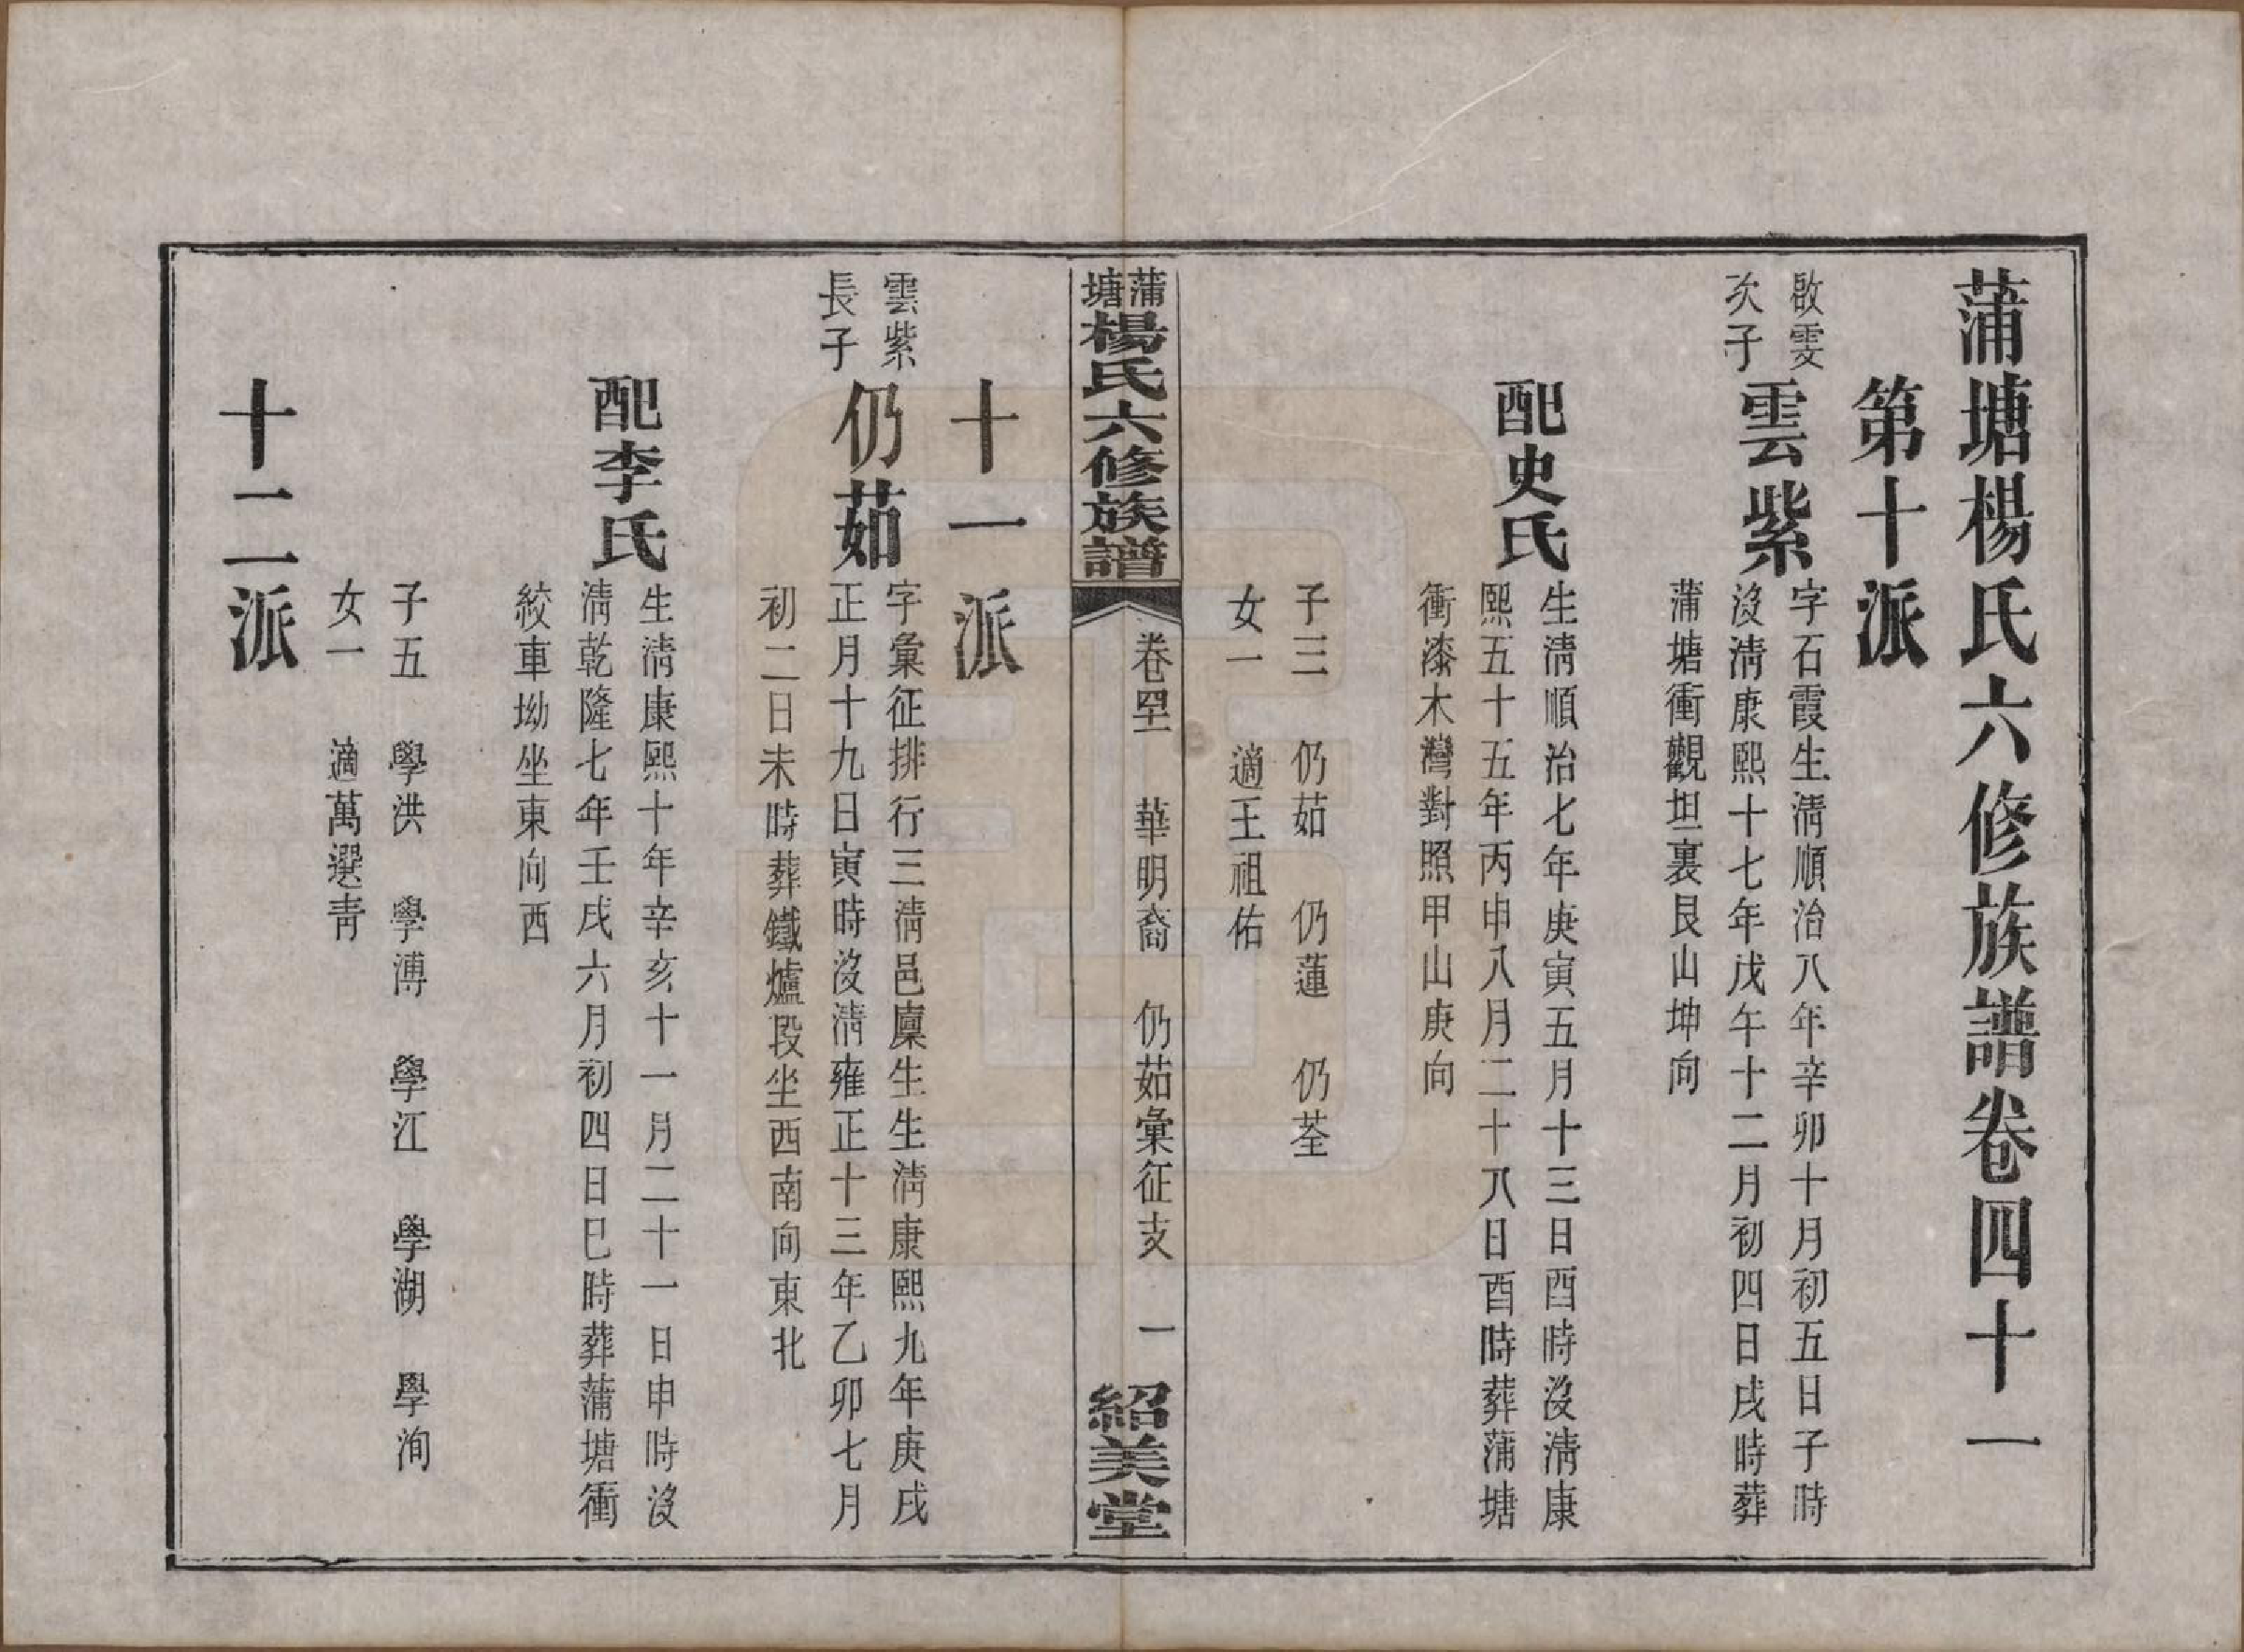 蒲塘楊氏六修族譜卷四十一
第十派
啟雯
次子
雲紫
字石霞生淸順治八年辛卯十月初五日子時
沒淸康熙十七年戊午十二月初四日戌時葬
蒲塘衝觀坦裏艮山坤向
配史氏
生淸順治七年庚寅五月十三日酉時沒淸康
熙五十五年丙申八月二十八日酉時葬蒲塘
衝漆木灣對照甲山庚向
子三 仍茹 仍蓮 仍荃
女一 適王祖佑
蒲塘楊氏六修族譜
卷四一 華明裔 仍茹彙征支 一
紹美堂
十一派
雲紫
長子
仍茹
字彙征排行三淸邑廩生生淸康熙九年庚戌
正月十九日寅時沒淸雍正十三年乙卯七月
初二日未時葬鐵爐段坐西南向東北
配李氏
生淸康熙十年辛亥十一月二十一日申時沒
淸乾隆七年壬戌六月初四日巳時葬蒲塘衝
絞車坳坐東向西
子五 學洪 學溥 學江 學湖 學洵
女一 適萬選靑
十二派